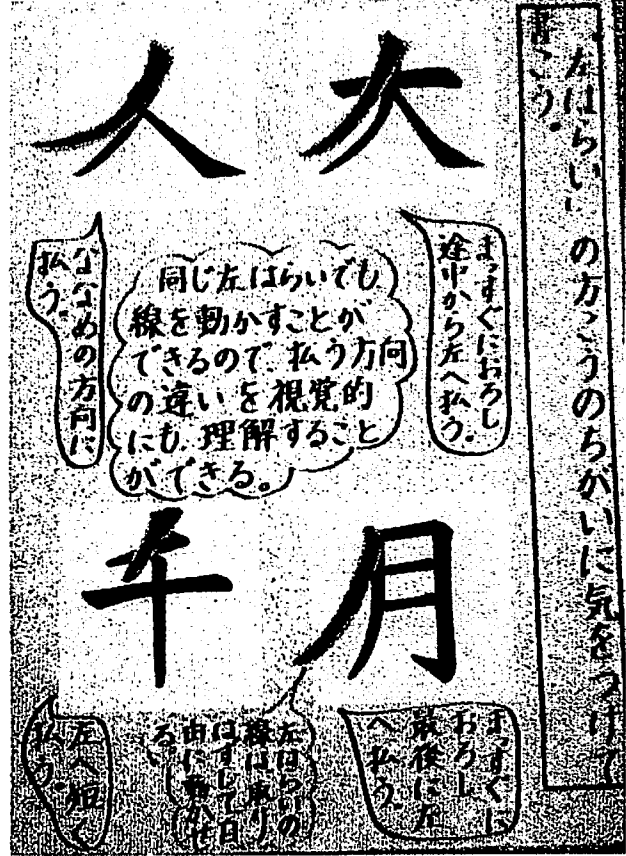 "左はらい"の方こうのちがいに気をつけて
書こう。
大
人
まっすぐにおろし
途中から左へ払う。
同じ左はらいでも
線を動かすことが
できるので、払う方向
の違いを視覚的
にも理解すること
ができる。
ななめの方向に
払う。
月
千
まっすぐに
おろし
最後に左
へ払う。
左はらいの
線は取り
はずして自
由に動かせ
る。
左へ短く
払う。